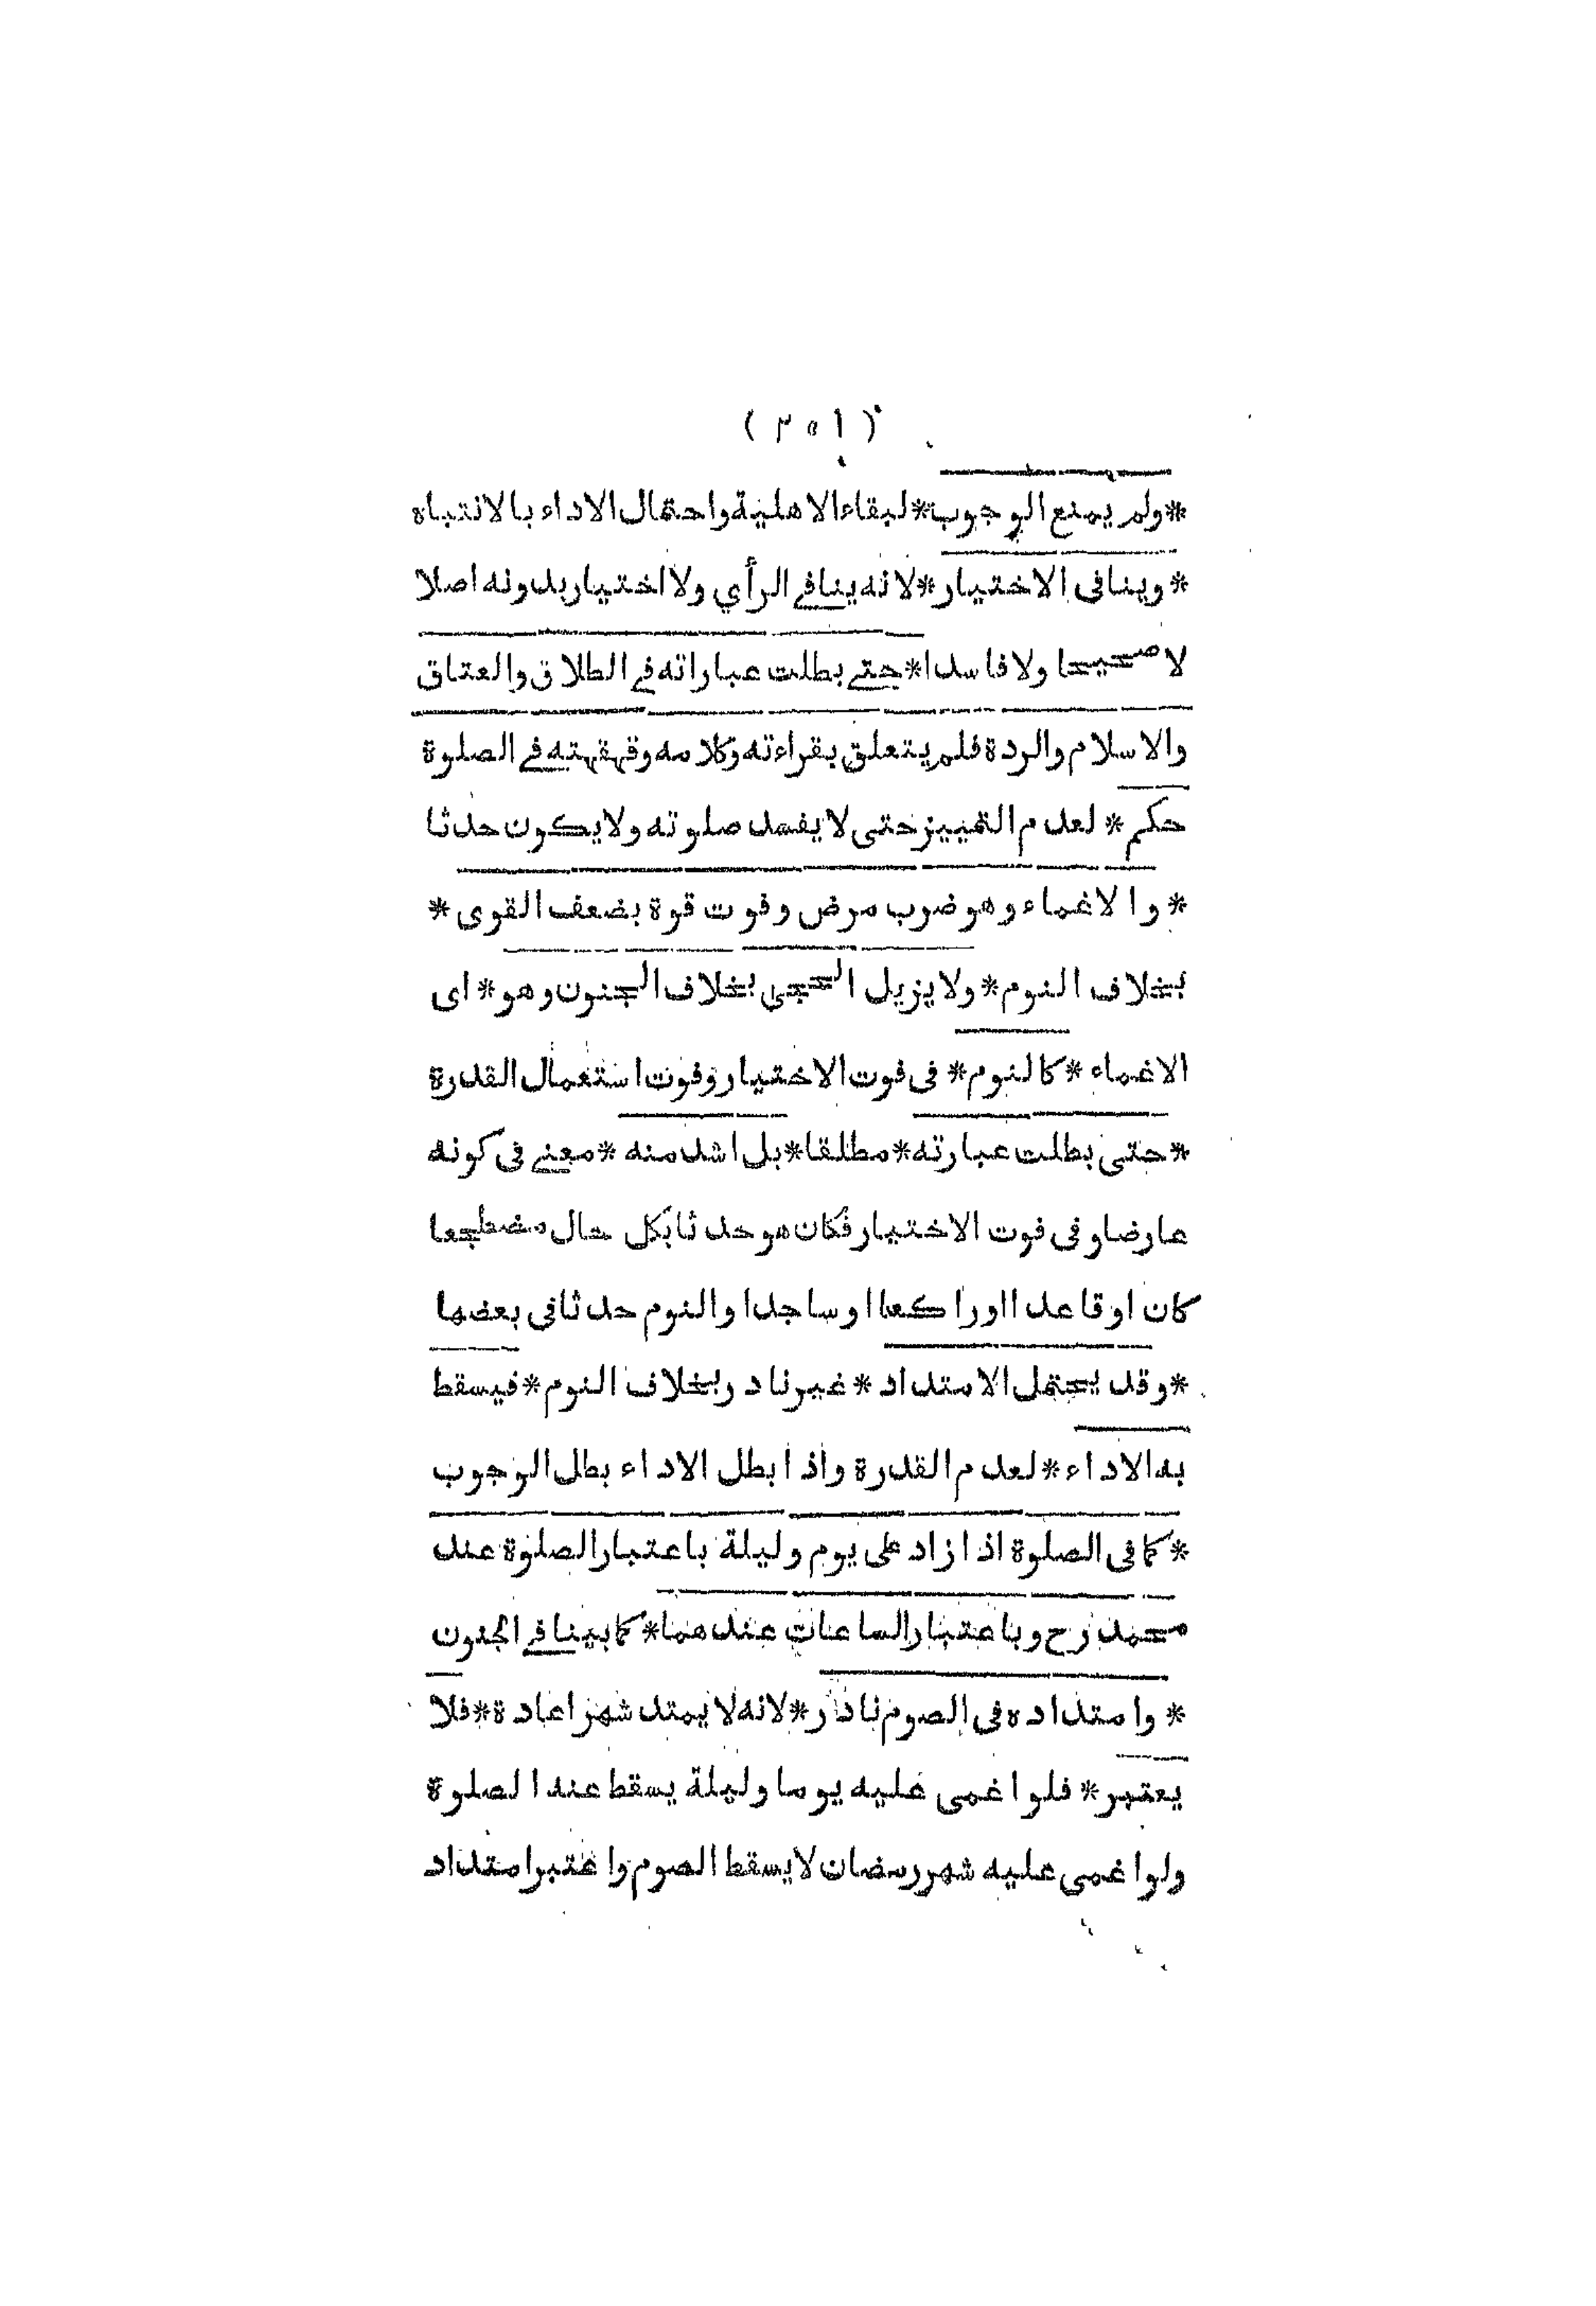 ( ٣٥١ )
*ولم يمنع الوجوب*لبقاء الاهلية واحتمال الاداء بالانتباه
*وينافى الاختيار*لانه ينافي الرأي ولا اختيار بدونه اصلا
لا صحيحا ولا فاسدا*حتے بطلت عباراته في الطلاق والعتاق
والاسلام والردة فلم يتعلق بقراءته وكلامه وقهقهته في الصلوة
حكم* لعدم التمييز حتى لا يفسد صلوته ولا يكون حدثا
*والاغماء وهو ضرب مرض وفوت قوة بضعف القوى*
بخلاف النوم*ولا يزيل الحجى بخلاف الجنون وهو*اى
الاغماء*كالنوم*فى فوت الاختيار وفوت استعمال القدرة
*حتى بطلت عبارته*مطلقا*بل اشد منه*معنے فى كونه
عارضا وفى فوت الاختيار فكان هو حدثا بكل حال مضطجعا
كان او قاعدا او راكعا او ساجدا والنوم حدثا فى بعضها
*وقد يحتمل الامتداد*غير نادر بخلاف النوم*فيسقط
به الاداء*لعدم القدرة واذا بطل الاداء بطل الوجوب
*كما فى الصلوة اذا زاد على يوم وليلة باعتبار الصلوة عند
محمد رح وباعتبار الساعات عندهما*كما بينا في الجنون
*وامتداده فى الصوم نادر*لانه لا يمتد شهرا عادة*فلا
يعتبر*فلو اغمى عليه يوما وليلة يسقط عند الصلوة
ولو اغمى عليه شهر رمضان لا يسقط الصوم واعتبر امتداد